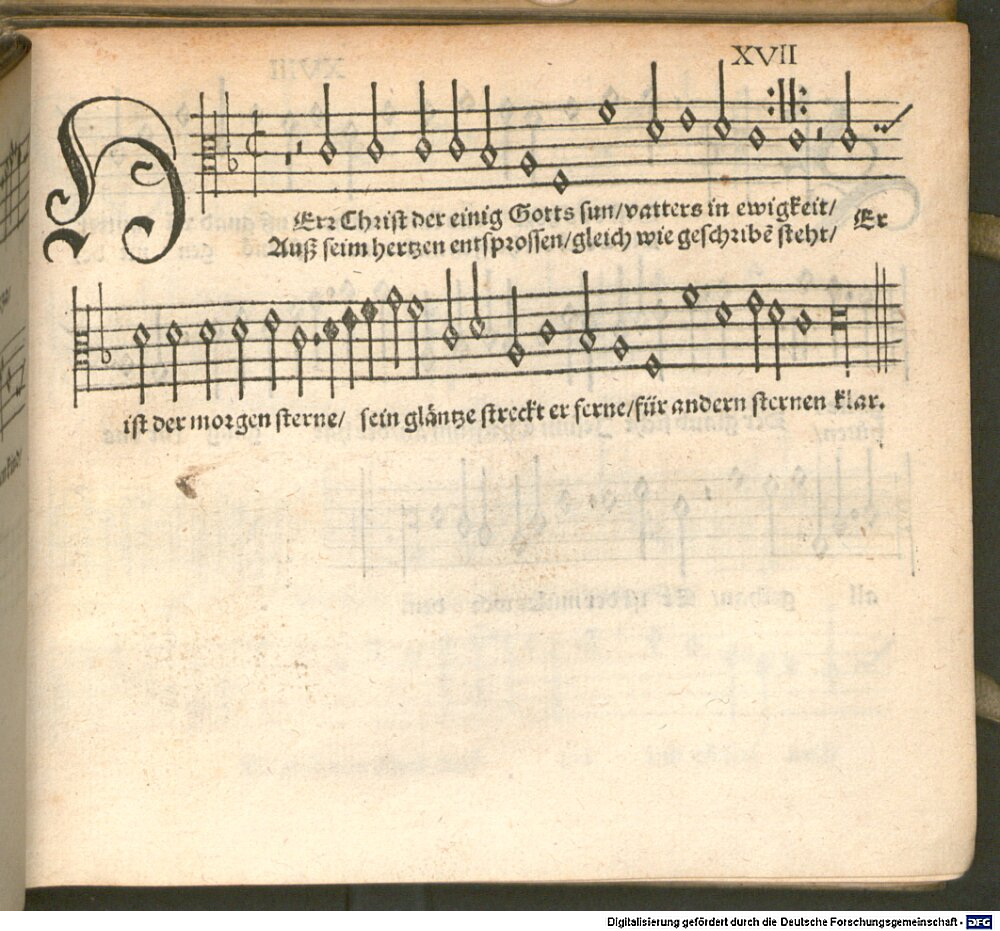 XVII
HErr Christ der einig Gotts sun/vatters in ewigkeit/ Er
Auß seim hertzen entsprossen/gleich wie geschribē steht/
ist der morgen sterne/ sein gläntze streckt er ferne/für andern sternen klar.
Digitalisierung gefördert durch die Deutsche Forschungsgemeinschaft - DFG